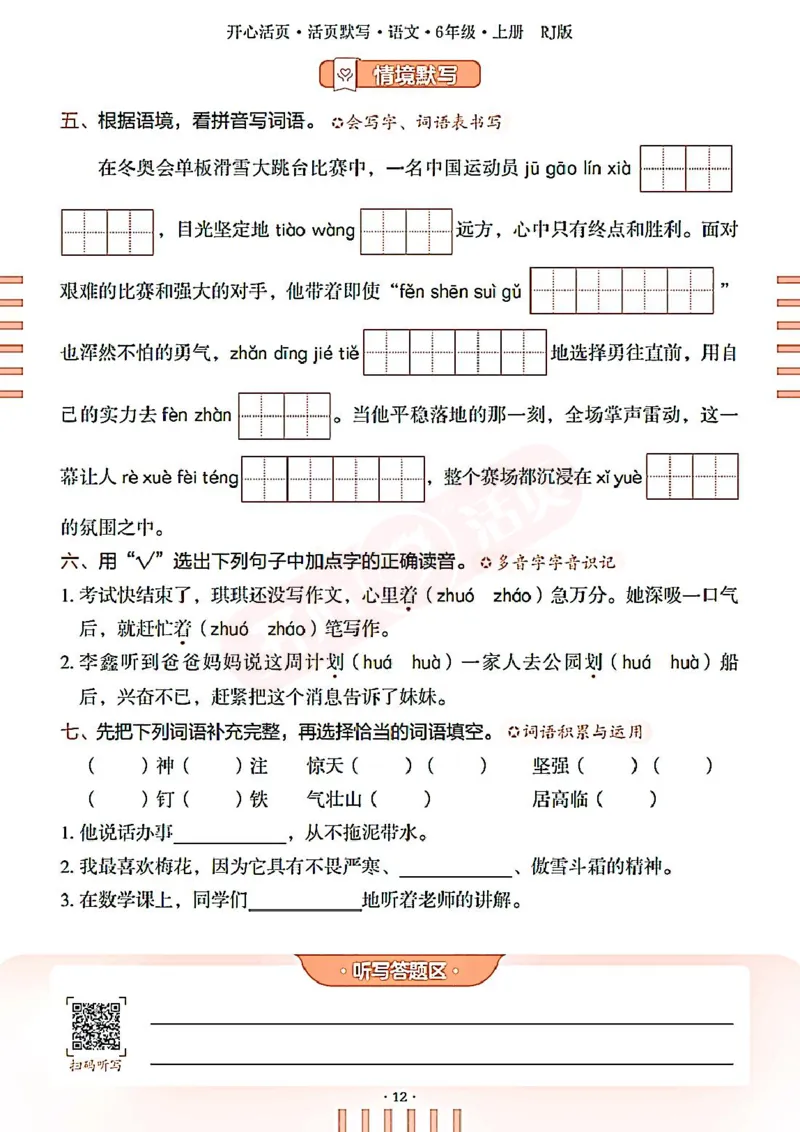 开心活页·活页默写·语文·6年级·上册 RJ版
情境默写
五、根据语境，看拼音写词语。 ✪会写字、词语表书写
在冬奥会单板滑雪大跳台比赛中，一名中国运动员 jū gāo lín xià
，目光坚定地 tiào wàng 远方，心中只有终点和胜利。面对
艰难的比赛和强大的对手，他带着即使“fěn shēn suì gǔ ”
也浑然不怕的勇气，zhǎn dīng jié tiě 地选择勇往直前，用自
己的实力去 fèn zhàn 。当他平稳落地的那一刻，全场掌声雷动，这一
幕让人 rè xuè fèi téng ，整个赛场都沉浸在 xǐ yuè
的氛围之中。
六、用“√”选出下列句子中加点字的正确读音。 ✪多音字字音识记
1. 考试快结束了，琪琪还没写作文，心里着（zhuó zháo）急万分。她深吸一口气
后，就赶忙着（zhuó zháo）笔写作。
2. 李鑫听到爸爸妈妈说这周计划（huá huà）一家人去公园划（huá huà）船
后，兴奋不已，赶紧把这个消息告诉了妹妹。
七、先把下列词语补充完整，再选择恰当的词语填空。 ✪词语积累与运用
（ ）神（ ）注 惊天（ ）（ ） 坚强（ ）（ ）
（ ）钉（ ）铁 气壮山（ ） 居高临（ ）
1. 他说话办事____________，从不拖泥带水。
2. 我最喜欢梅花，因为它具有不畏严寒、____________、傲雪斗霜的精神。
3. 在数学课上，同学们____________地听着老师的讲解。
·听写答题区·
扫码听写
·12·